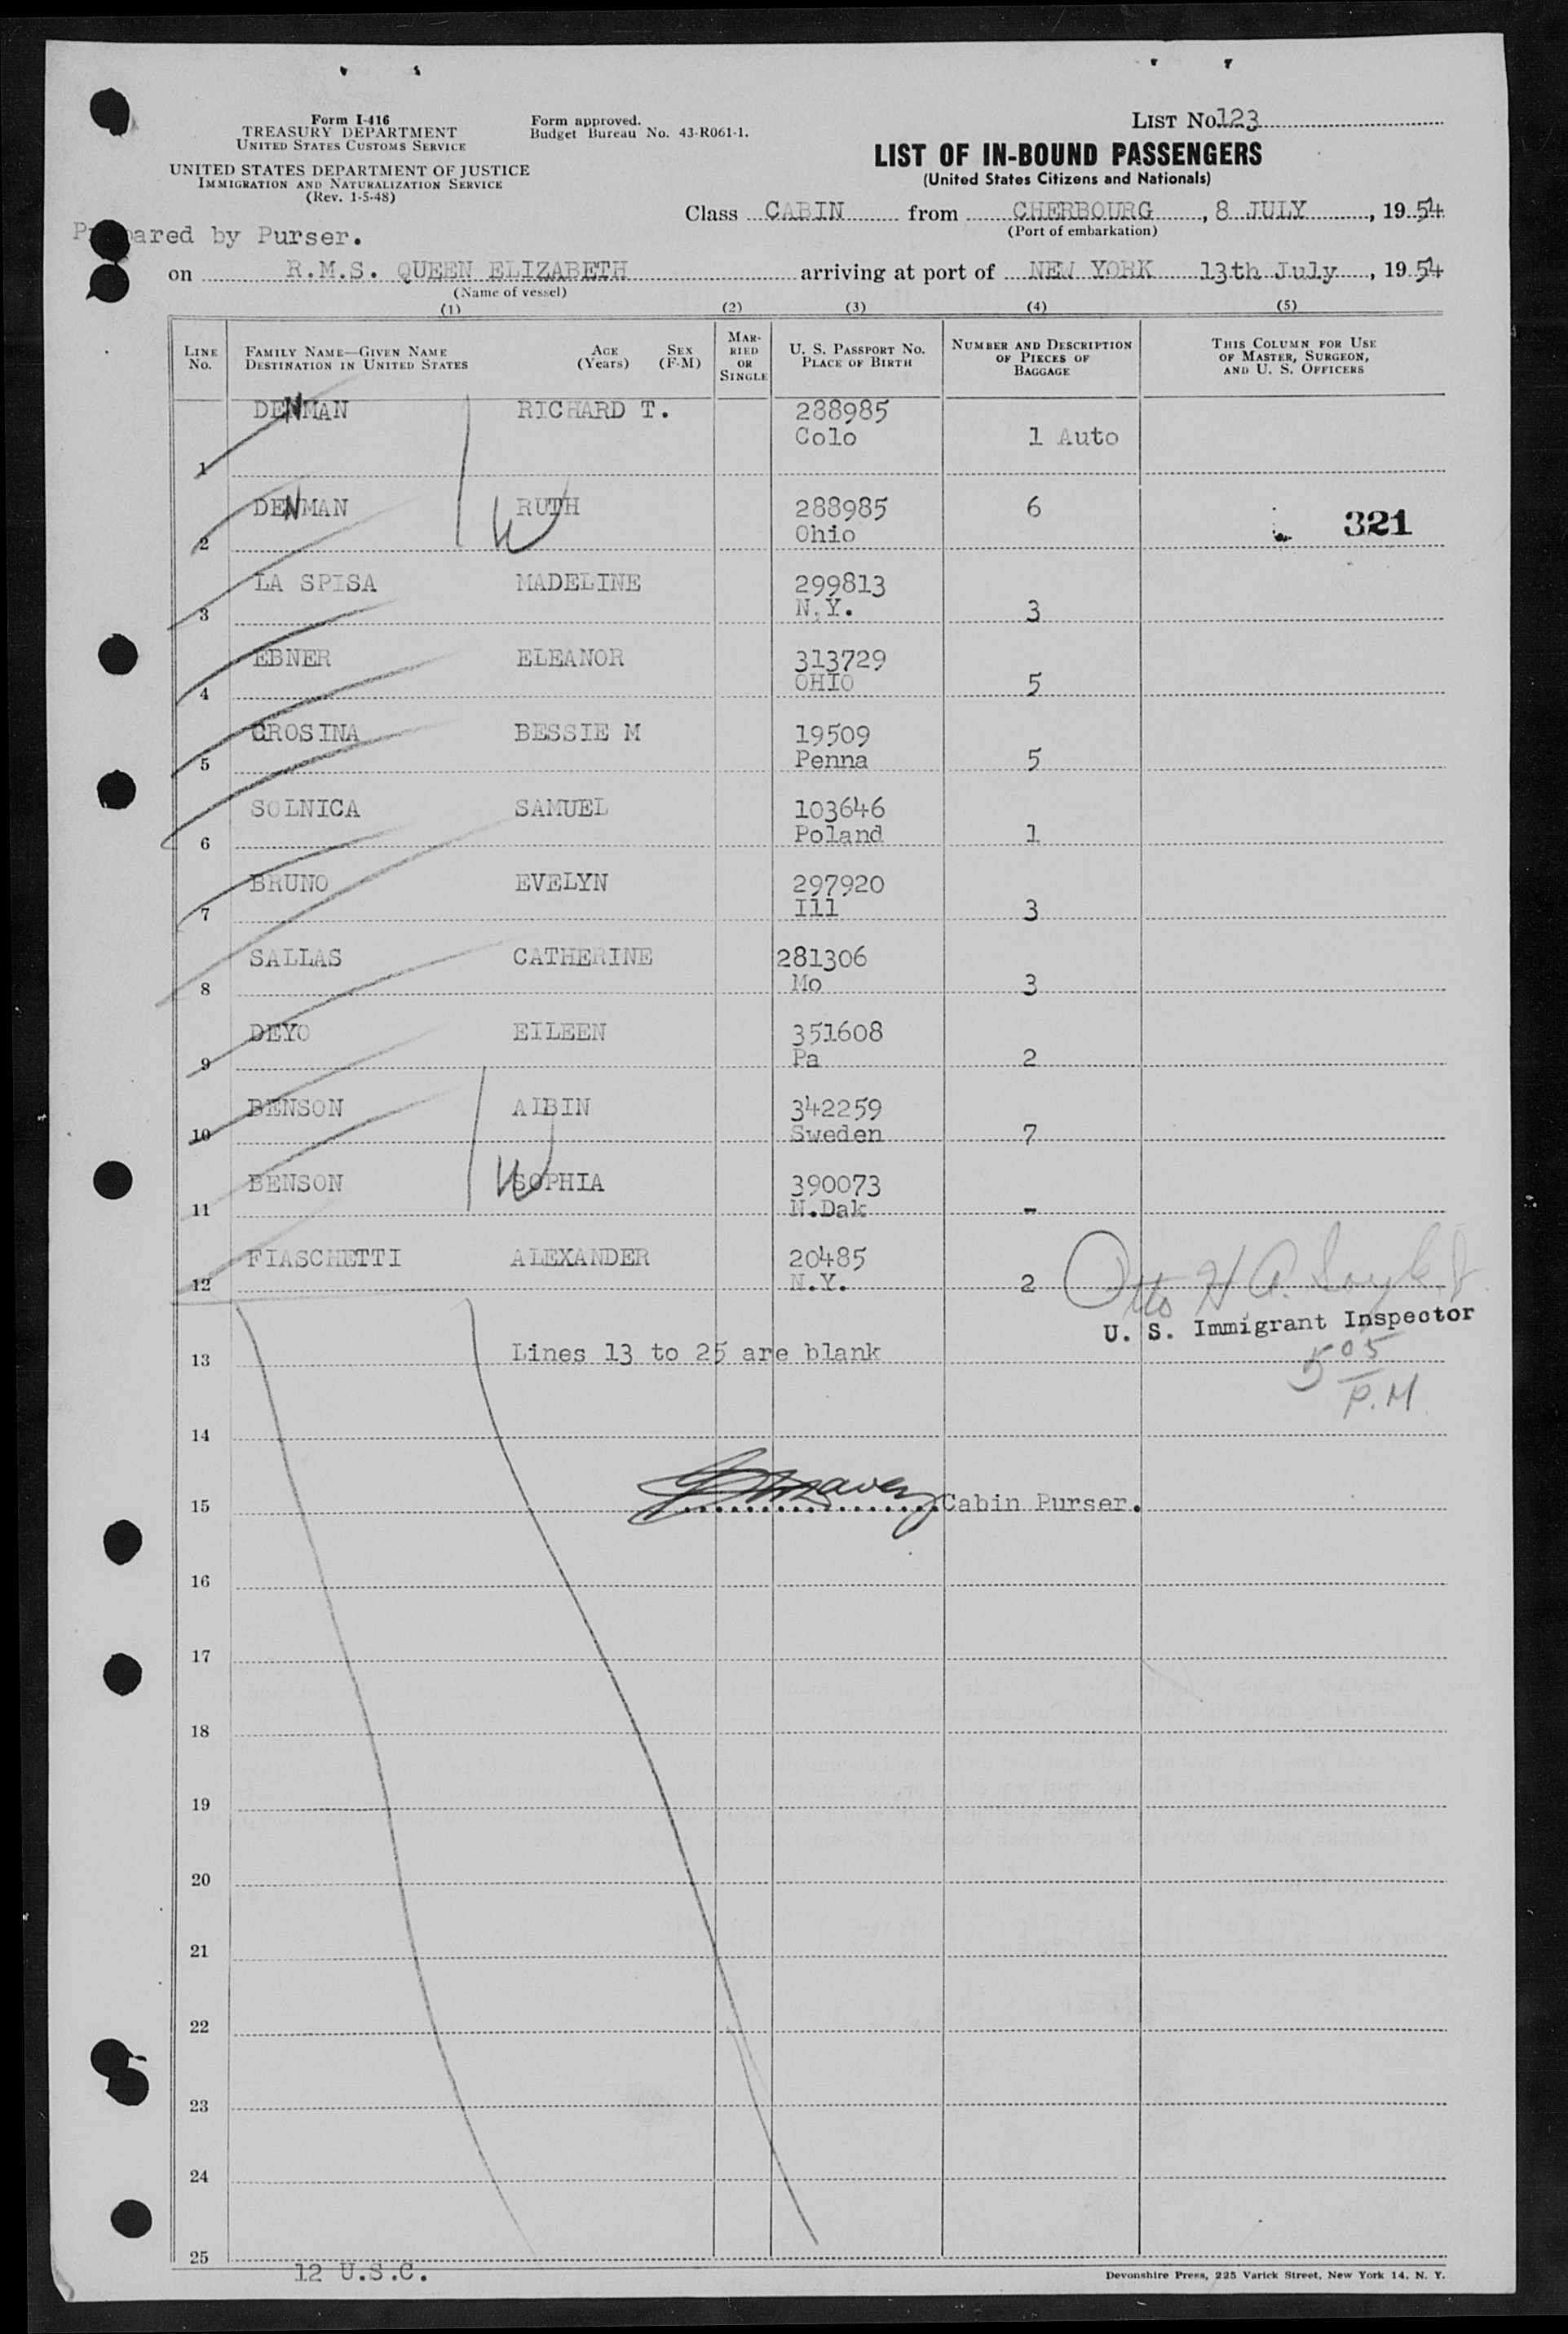 Form I-416
TREASURY DEPARTMENT
UNITED STATES CUSTOMS SERVICE
UNITED STATES DEPARTMENT OF JUSTICE
IMMIGRATION AND NATURALIZATION SERVICE
(Rev. 1-5-48)
Form approved.
Budget Bureau No. 43-R061-1.
LIST No. 123
LIST OF IN-BOUND PASSENGERS
(United States Citizens and Nationals)
Class CABIN from CHERBOURG, 8 JULY, 1954
(Port of embarkation)
Prepared by Purser.
on R.M.S. QUEEN ELIZABETH arriving at port of NEW YORK 13th July, 1954
(Name of vessel)
(1) (2) (3) (4) (5)
LINE No.
FAMILY NAME—GIVEN NAME
DESTINATION IN UNITED STATES
AGE (Years)
SEX (F-M)
MARRIED OR SINGLE
U. S. PASSPORT No.
PLACE OF BIRTH
NUMBER AND DESCRIPTION OF PIECES OF BAGGAGE
THIS COLUMN FOR USE OF MASTER, SURGEON, AND U. S. OFFICERS
DENMAN RICHARD T. 288985
1 Colo 1 Auto
DENMAN RUTH 288985 6
2 W Ohio 321
LA SPISA MADELINE 299813
3 N.Y. 3
EBNER ELEANOR 313729
4 OHIO 5
CROSINA BESSIE M 19509
5 Penna 5
SOLNICA SAMUEL 103646
6 Poland 1
BRUNO EVELYN 297920
7 Ill 3
SALLAS CATHERINE 281306
8 Mo 3
DEYO EILEEN 351608
9 Pa 2
BENSON AIBIN 342259
10 Sweden 7
BENSON W SOPHIA 390073
11 N.Dak -
FIASCHETTI ALEXANDER 20485
12 N.Y. 2
Otto H
U. S. Immigrant Inspector
13 Lines 13 to 25 are blank
5 05
P.M.
14
15 Cabin Purser.
16
17
18
19
20
21
22
23
24
25
12 U.S.C.
Devonshire Press, 225 Varick Street, New York 14, N. Y.